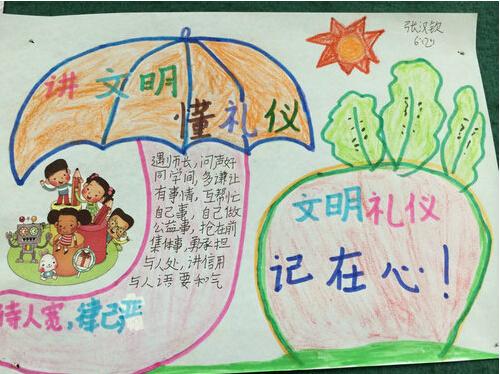 张汉钦
6.(2)
讲文明
懂礼仪
遇师长,问声好
同学间,多谦让
有事情,互帮忙
自己事,自己做
公益事,抢在前
集体事,勇承担
与人处,讲信用
与人语要和气
待人宽,律己严
文明礼仪
记在心!